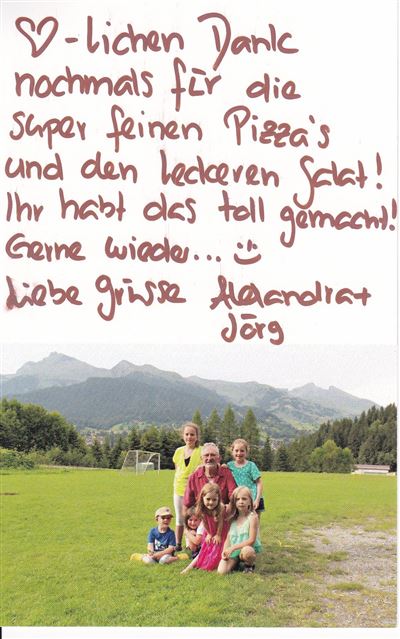 ♡-lichen Dank
nochmals für die
super feinen Pizza's
und den leckeren Salat!
Ihr habt das toll gemacht!
Gerne wieder... ☺
Liebe Grüsse Alexandra +
Jörg